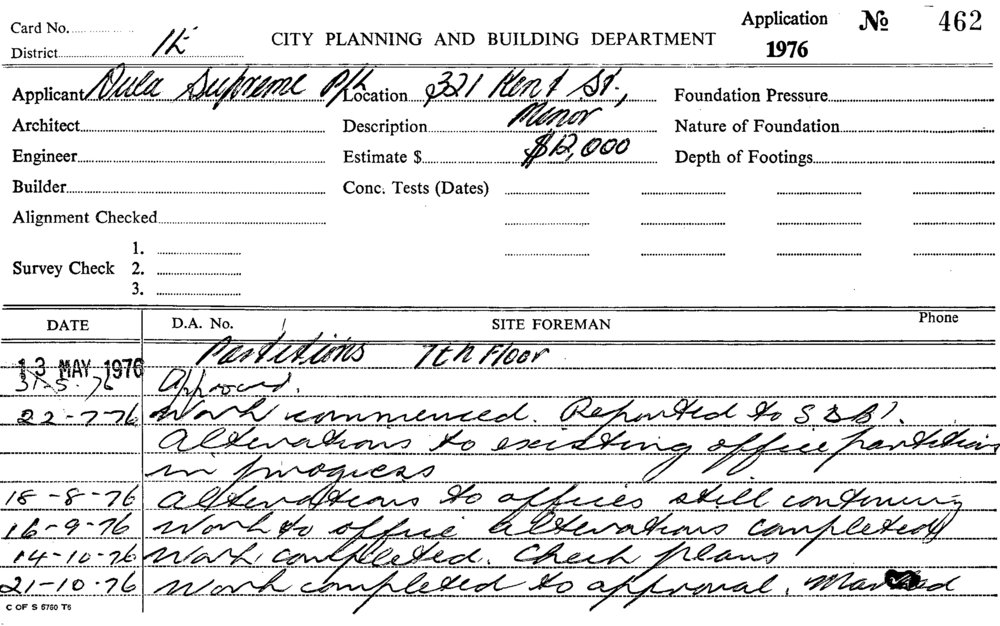 Card No.
District 1K
CITY PLANNING AND BUILDING DEPARTMENT
Application No 462
1976
Applicant Supreme P/L Location 321 Kent St.,
Foundation Pressure
Architect Description Minor Nature of Foundation
Engineer Estimate $ $12,000 Depth of Footings
Builder Conc. Tests (Dates)
Alignment Checked
1.
Survey Check 2.
3.
DATE D.A. No. SITE FOREMAN Phone
13 MAY 1976 Partitions 7th Floor
31-5-76 Approved.
22-7-76 Work commenced. Reported to
Alterations to existing office partitions
in progress
18-8-76 Alterations to offices still continuing
16-9-76 Work to office alterations completed
14-10-76 Work completed. Check plans
21-10-76 Work completed to approval.
C OF S 6760 T6